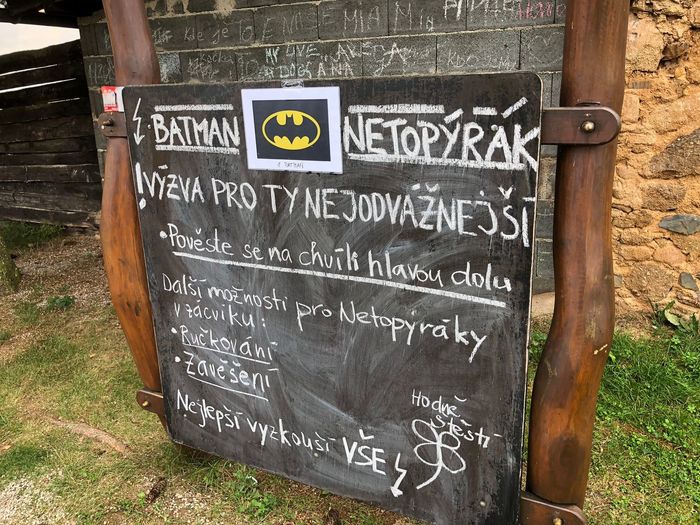 BATMAN NETOPÝRÁK
! VÝZVA PRO TY NEJODVÁŽNEJŠÍ
• Pověste se na chvíli hlavou dolu
Další možnosti pro Netopýráky
v zácviku:
• Ručkování
• Zavěšení
Nejlepší vyzkouší VŠE
Hodně
štěstí